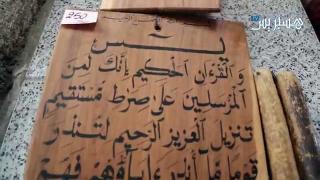 250
هسبريس
يس
و القرءان الحكيم إنك لمن
المرسلين على صرط مستقيم
تنزيل العزيز الرحيم لتنذر
قوما ما أنذر ءاباؤهم فهم